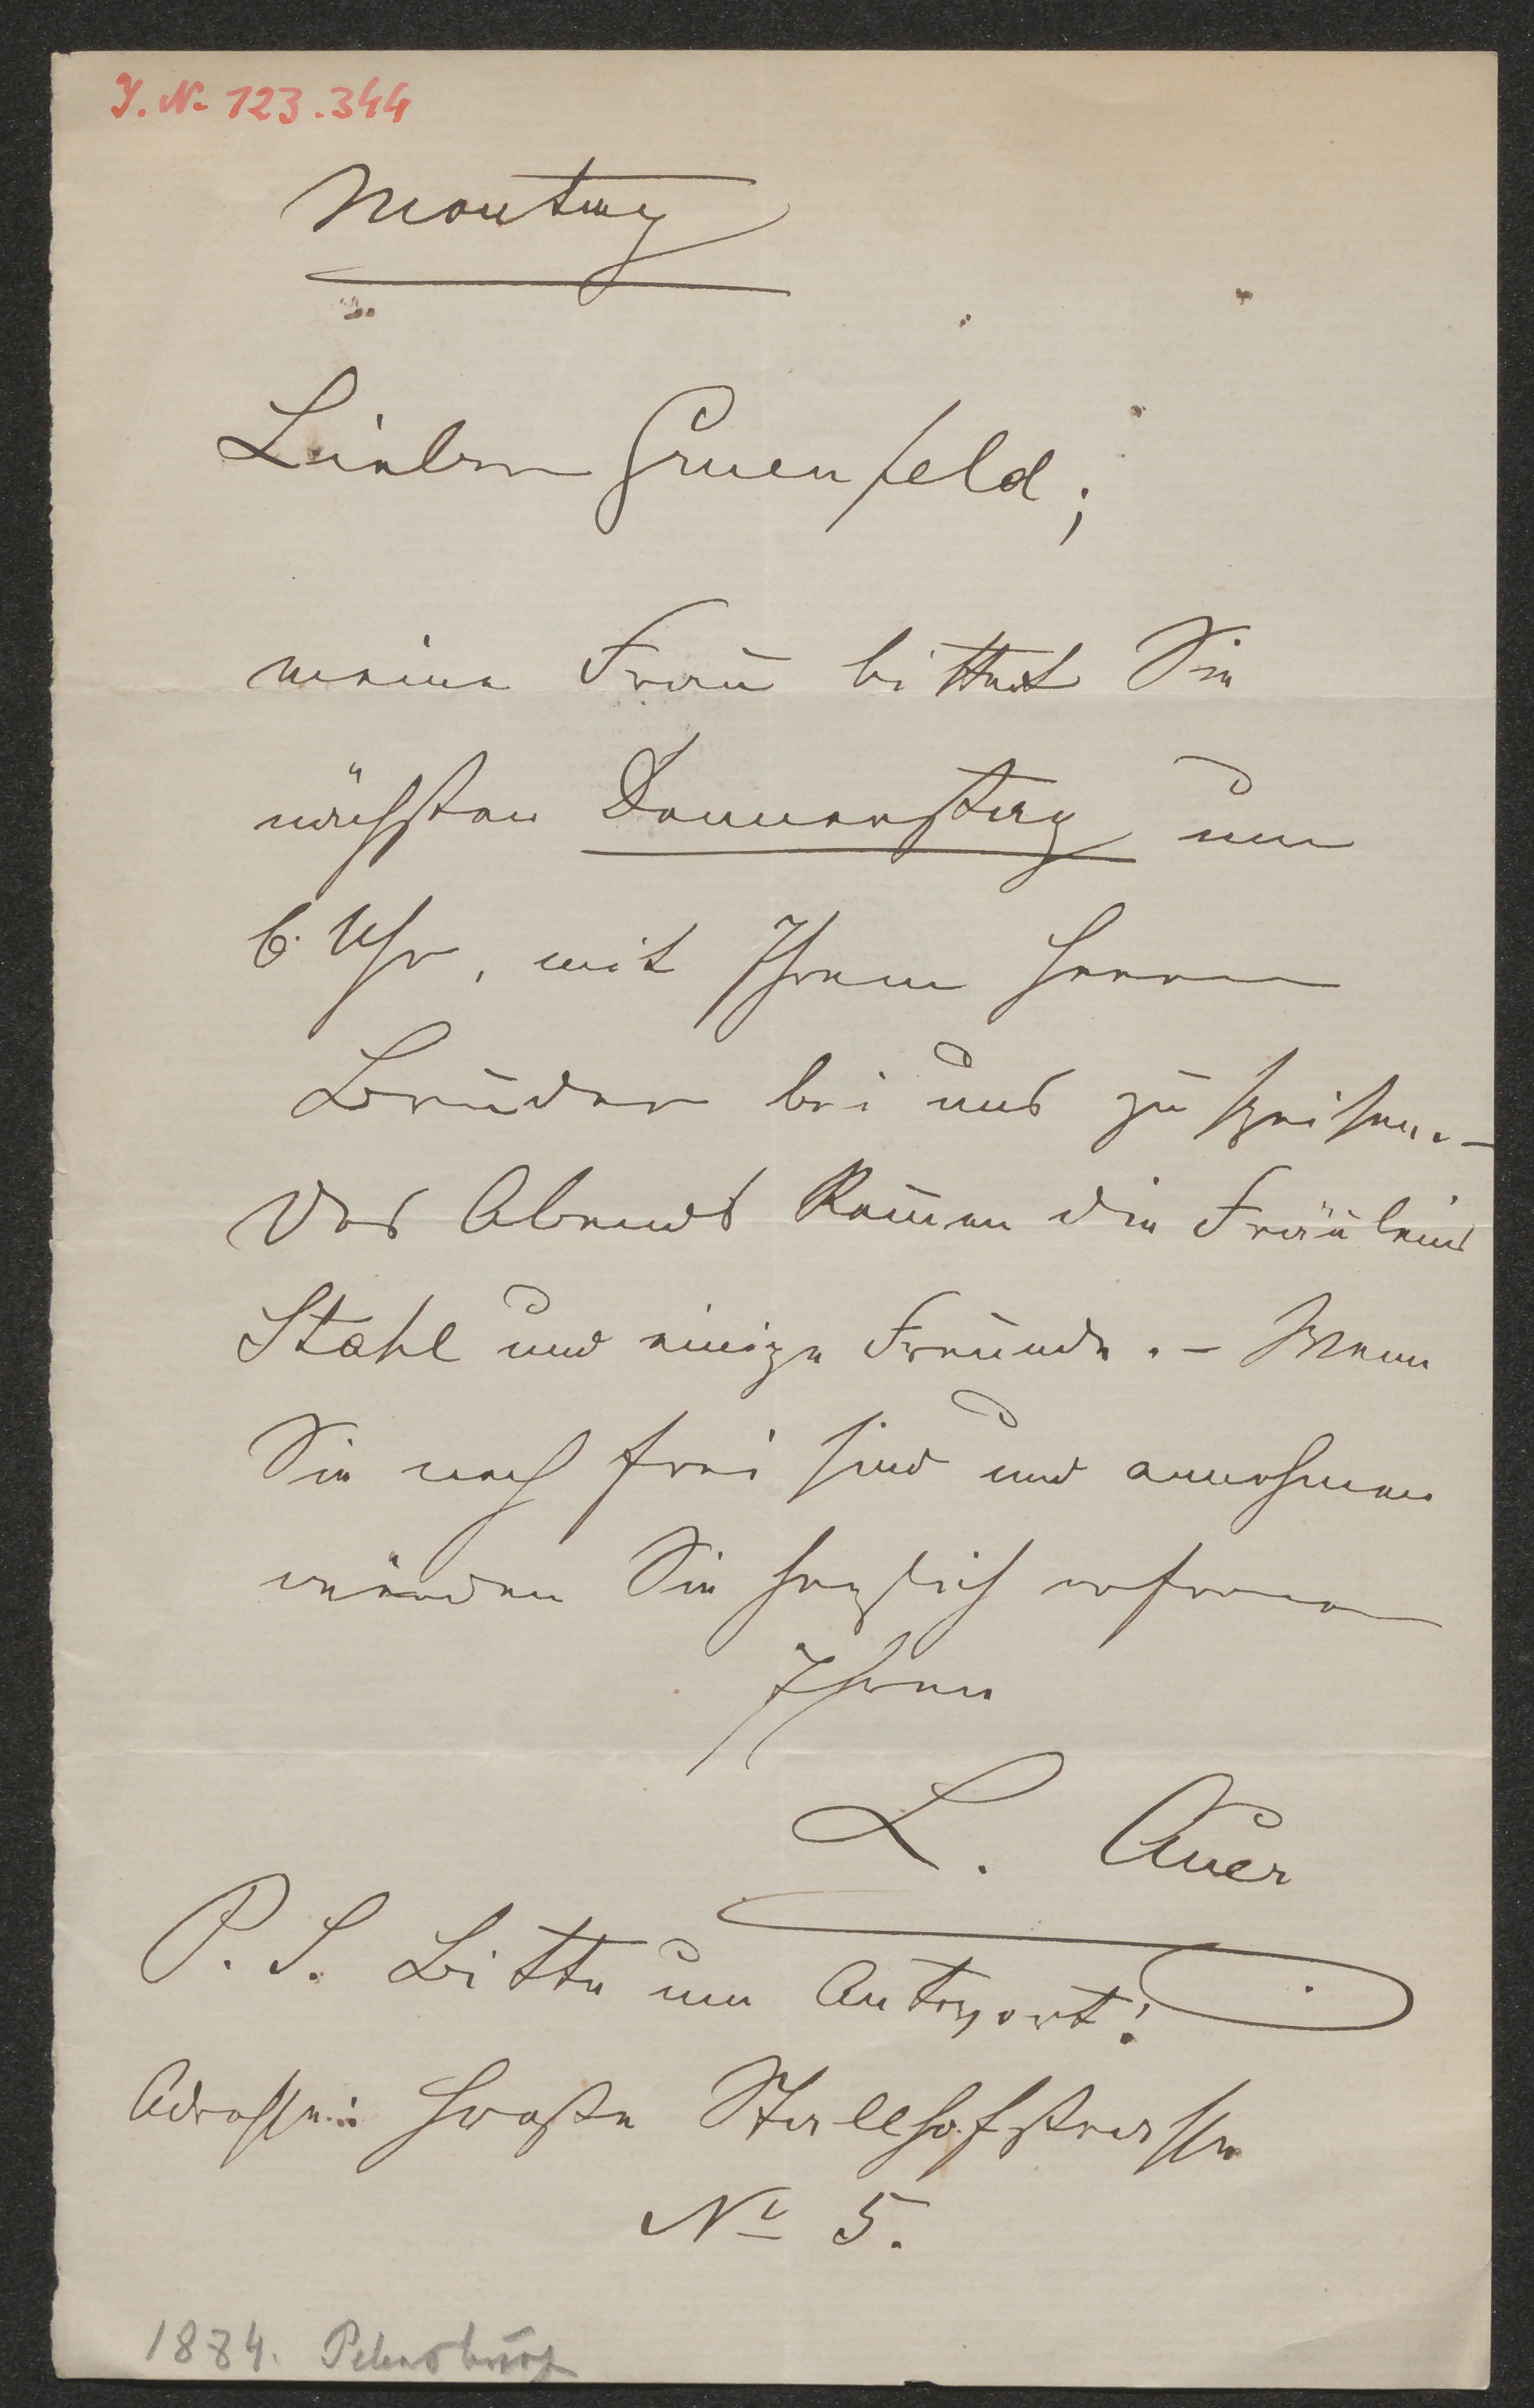 J. N. 123.344
Montag
Lieber Gruenfeld;
meine Frau bittet Sie
nächsten Donnerstag um
6 Uhr, mit Ihrem Herrn
Bruder bei uns zu speisen. –
Des Abends kom̄en die Fräuleins
Stahl und einige Freunde. – Wenn
Sie noch frei sind und annehmen
würden Sie herzlich erfreuen
Ihren
L. Auer
P. S. Bitte um Antwort!
Adresse: Große Stallhofstrasse
No 5.
1884. Petersburg